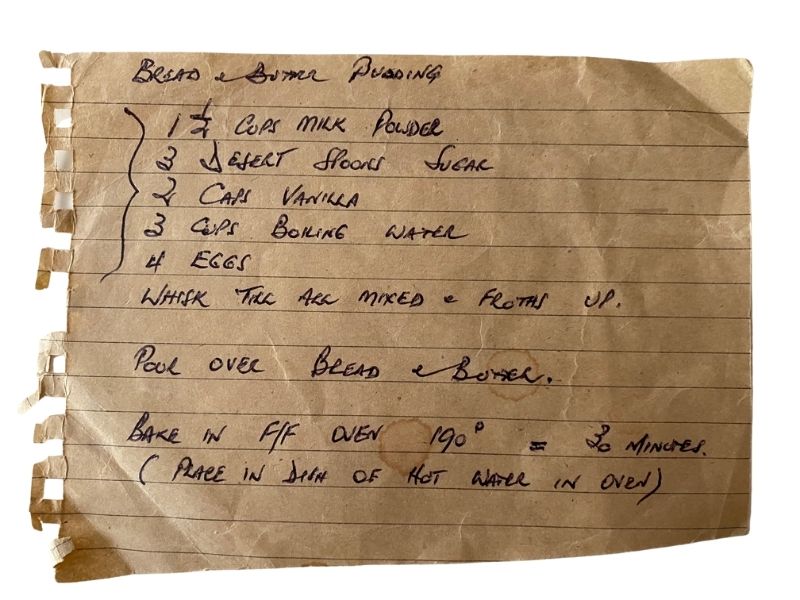 BREAD & BUTTER PUDDING
1 ½ CUPS MILK POWDER
3 DESERT SPOONS SUGAR
2 CAPS VANILLA
3 CUPS BOILING WATER
4 EGGS
WHISK TILL ALL MIXED & FROTHS UP.
POUR OVER BREAD & BUTTER.
BAKE IN F/F OVEN 190° = 30 MINUTES.
( PLACE IN DISH OF HOT WATER IN OVEN )